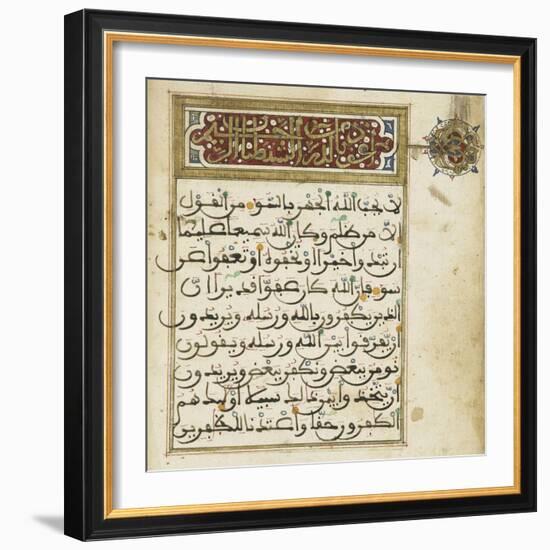 لا يحب الله الجهر بالسوء من القول
الا من ظلم وكان الله سميعا عليما
ان تبدوا خيرا او تخفوه او تعفوا عن
سوء فان الله كان عفوا قديرا ان
الذين يكفرون بالله ورسله ويريدون
ان يفرقوا بين الله ورسله ويقولون
نومن ببعض ونكفر ببعض ويريدون
ان يتخذوا بين ذلك سبيلا اولئك هم
الكفرون حقا واعتدنا للكفرين